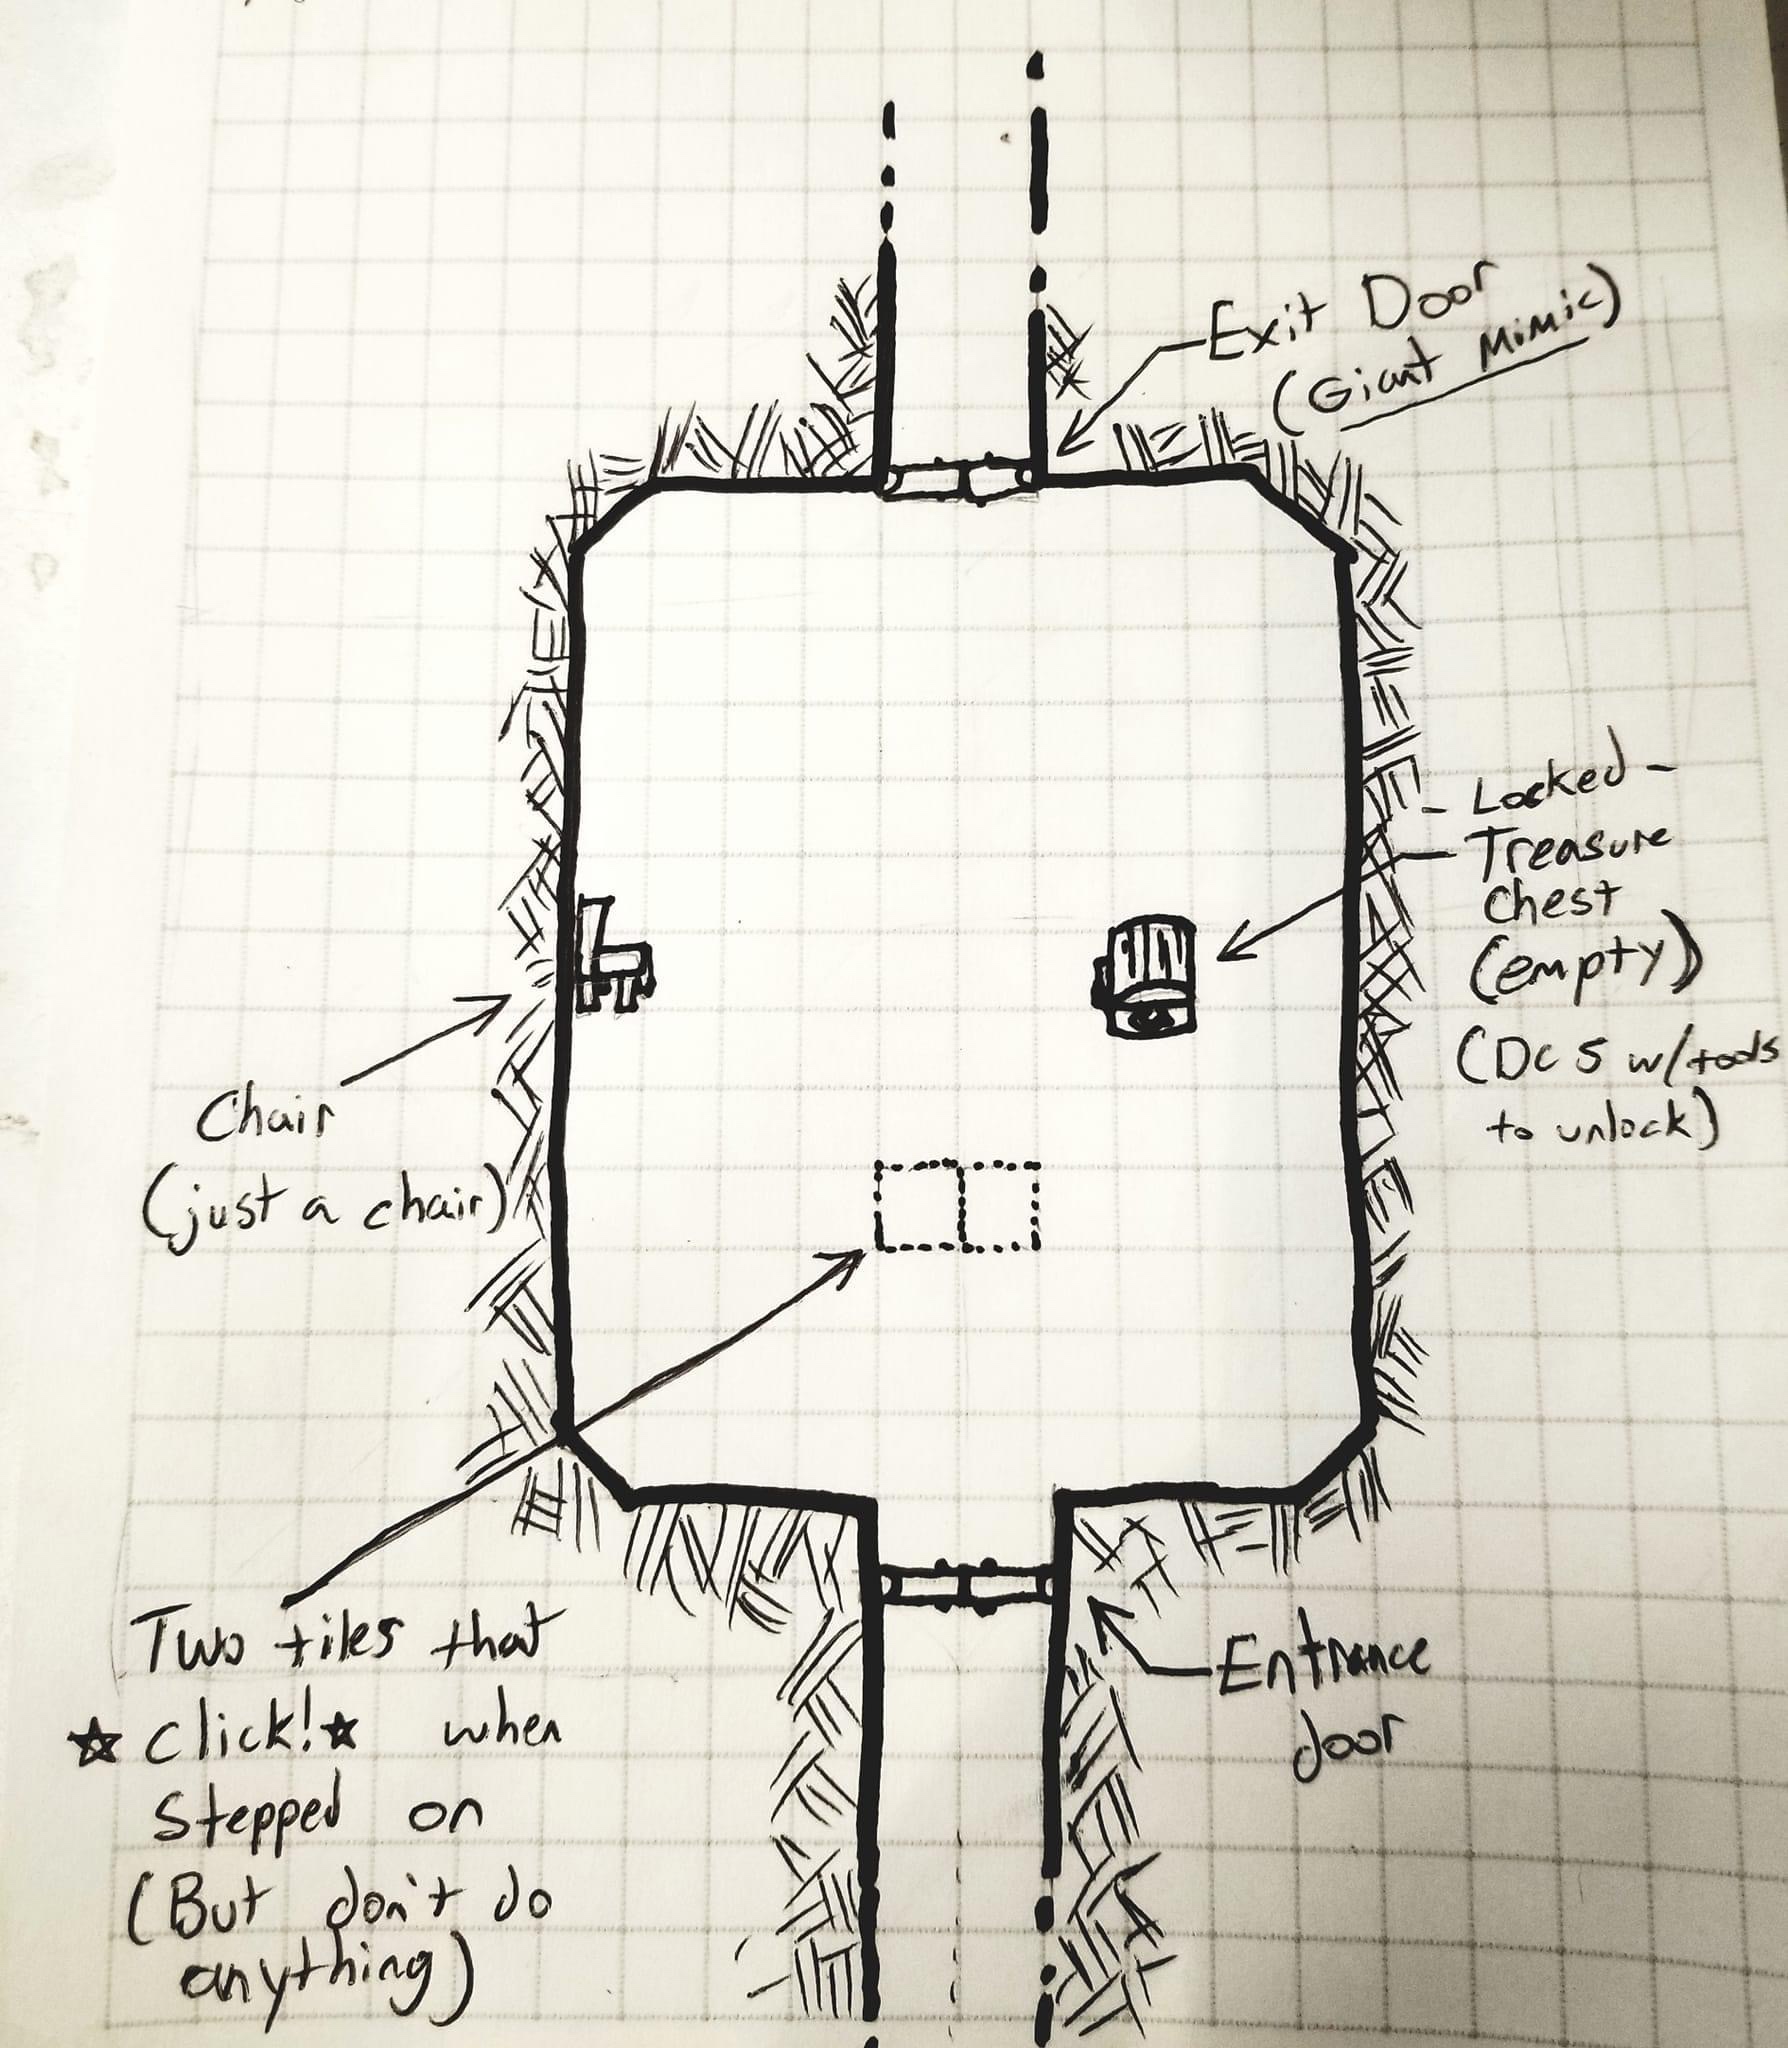 Exit Door
(Giant Mimic)
- Locked -
Treasure
Chest
(empty)
(DC 5 w/tools
to unlock)
Chair
(just a chair)
Two tiles that
☆ click!☆ when
stepped on
(But don't do
anything)
Entrance
door